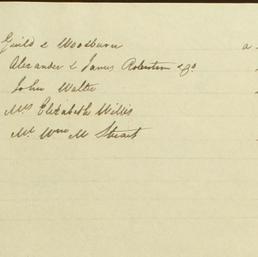 Guild & Woodburn a
Alexander & James Robertson & Co
John Walter
Mrs Elizabeth Willis
Mr Wm M Stuart